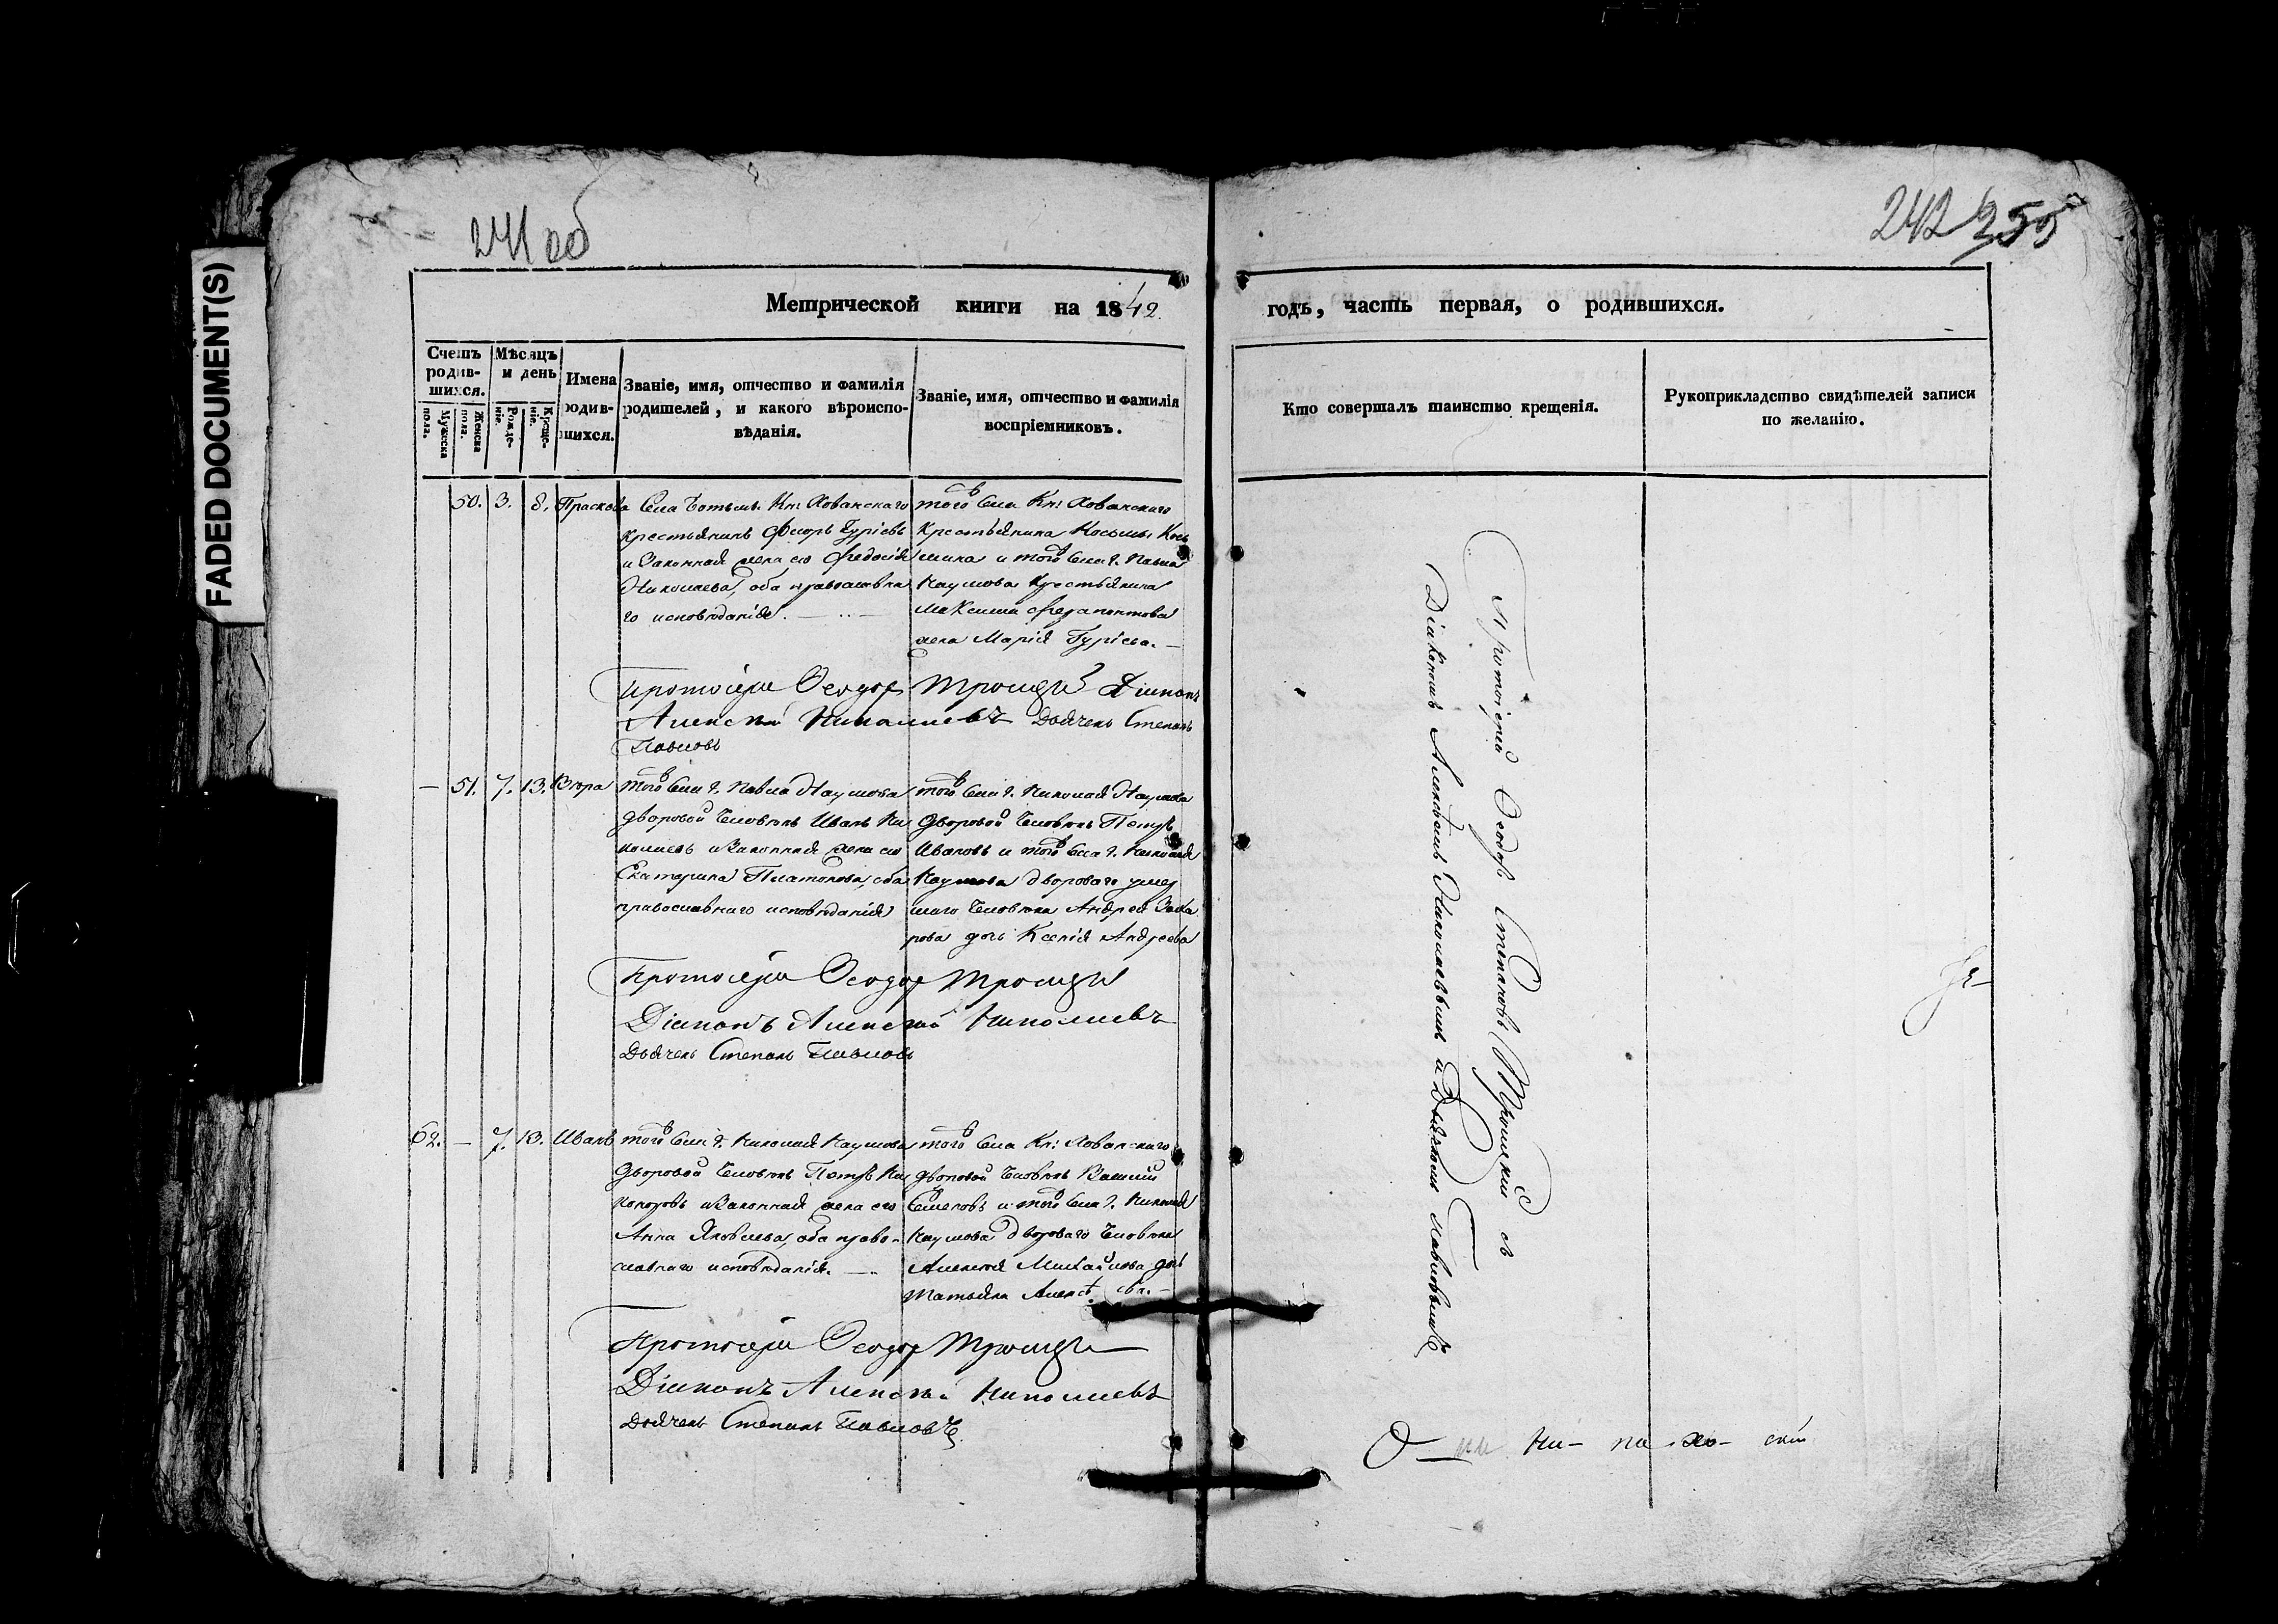 FADED DOCUMENT(S)
241 об
242 255
Метрической книги на 1842.
годъ, часть первая, о родившихся.
Счетъ родив-шихся.
Мужеска пола.
Женска пола.
Мѣсяцъ и день
Рожде-ніе.
Креще-ніе.
Имена родив-шихся.
Званіе, имя, отчество и фамилія
родителей, и какого вѣроиспо-
вѣданія.
Званіе, имя, отчество и фамилія
воспріемниковъ.
Кто совершалъ таинство крещенія.
Рукоприкладство свидѣтелей записи
по желанію.
50. 3. 8. Прасковья
Села Кн: Хованскаго
крестьянинъ Ѳеоръ Гурiевъ
и законная жена его Ѳедосія
Николаева, оба православна
го исповѣданія.
того села Кн: Хованскаго
крестьянина Косьмы Кось
мина и того села г. Павла
Наумова крестьянина
Максима Ѳерапонтова
жена Марія Гурiева.
Протоіерей Ѳеодор Троицкій Діаконъ
Алексѣй Николаевъ Дьячекъ Степанъ
Павловъ
— 51. 7. 13.
того села г. Павла Наумова
дворовой человѣкъ Иванъ Ни
колаевъ и законная жена его
Екатерина Платонова, оба
православнаго исповѣданія
того села г. Николая Наумова
дворовой человѣкъ Петръ
Ивановъ и того села г. Николая
Наумова двороваго умер
шаго человѣка Андрея Заха
рова дочь Ксенія Андреева
Протоіерей Ѳеодор Троицкій
Діаконъ Алексѣй Николаевъ
Дьячекъ Степанъ Павловъ
62. — 7. 13. Иванъ
того села г. Николая Наумова
дворовой человѣкъ Петръ Ни
каноровъ и законная жена его
Анна Яковлева, оба право-
славнаго исповѣданія.
того села Кн: Хованскаго
дворовой человѣкъ Василій
Семеновъ и того села г. Николая
Наумова двороваго человѣка
Алексѣя Михайлова дочь
Татьяна
Протоіерей Ѳеодор Троицкій
Діаконъ Алексѣй Николаевъ
Дьячекъ Степанъ Павловъ
Протоіерей Ѳеодоръ Степановъ Троицкій съ
Діакономъ Алексѣемъ Николаевымъ и Дьячкомъ Павловымъ